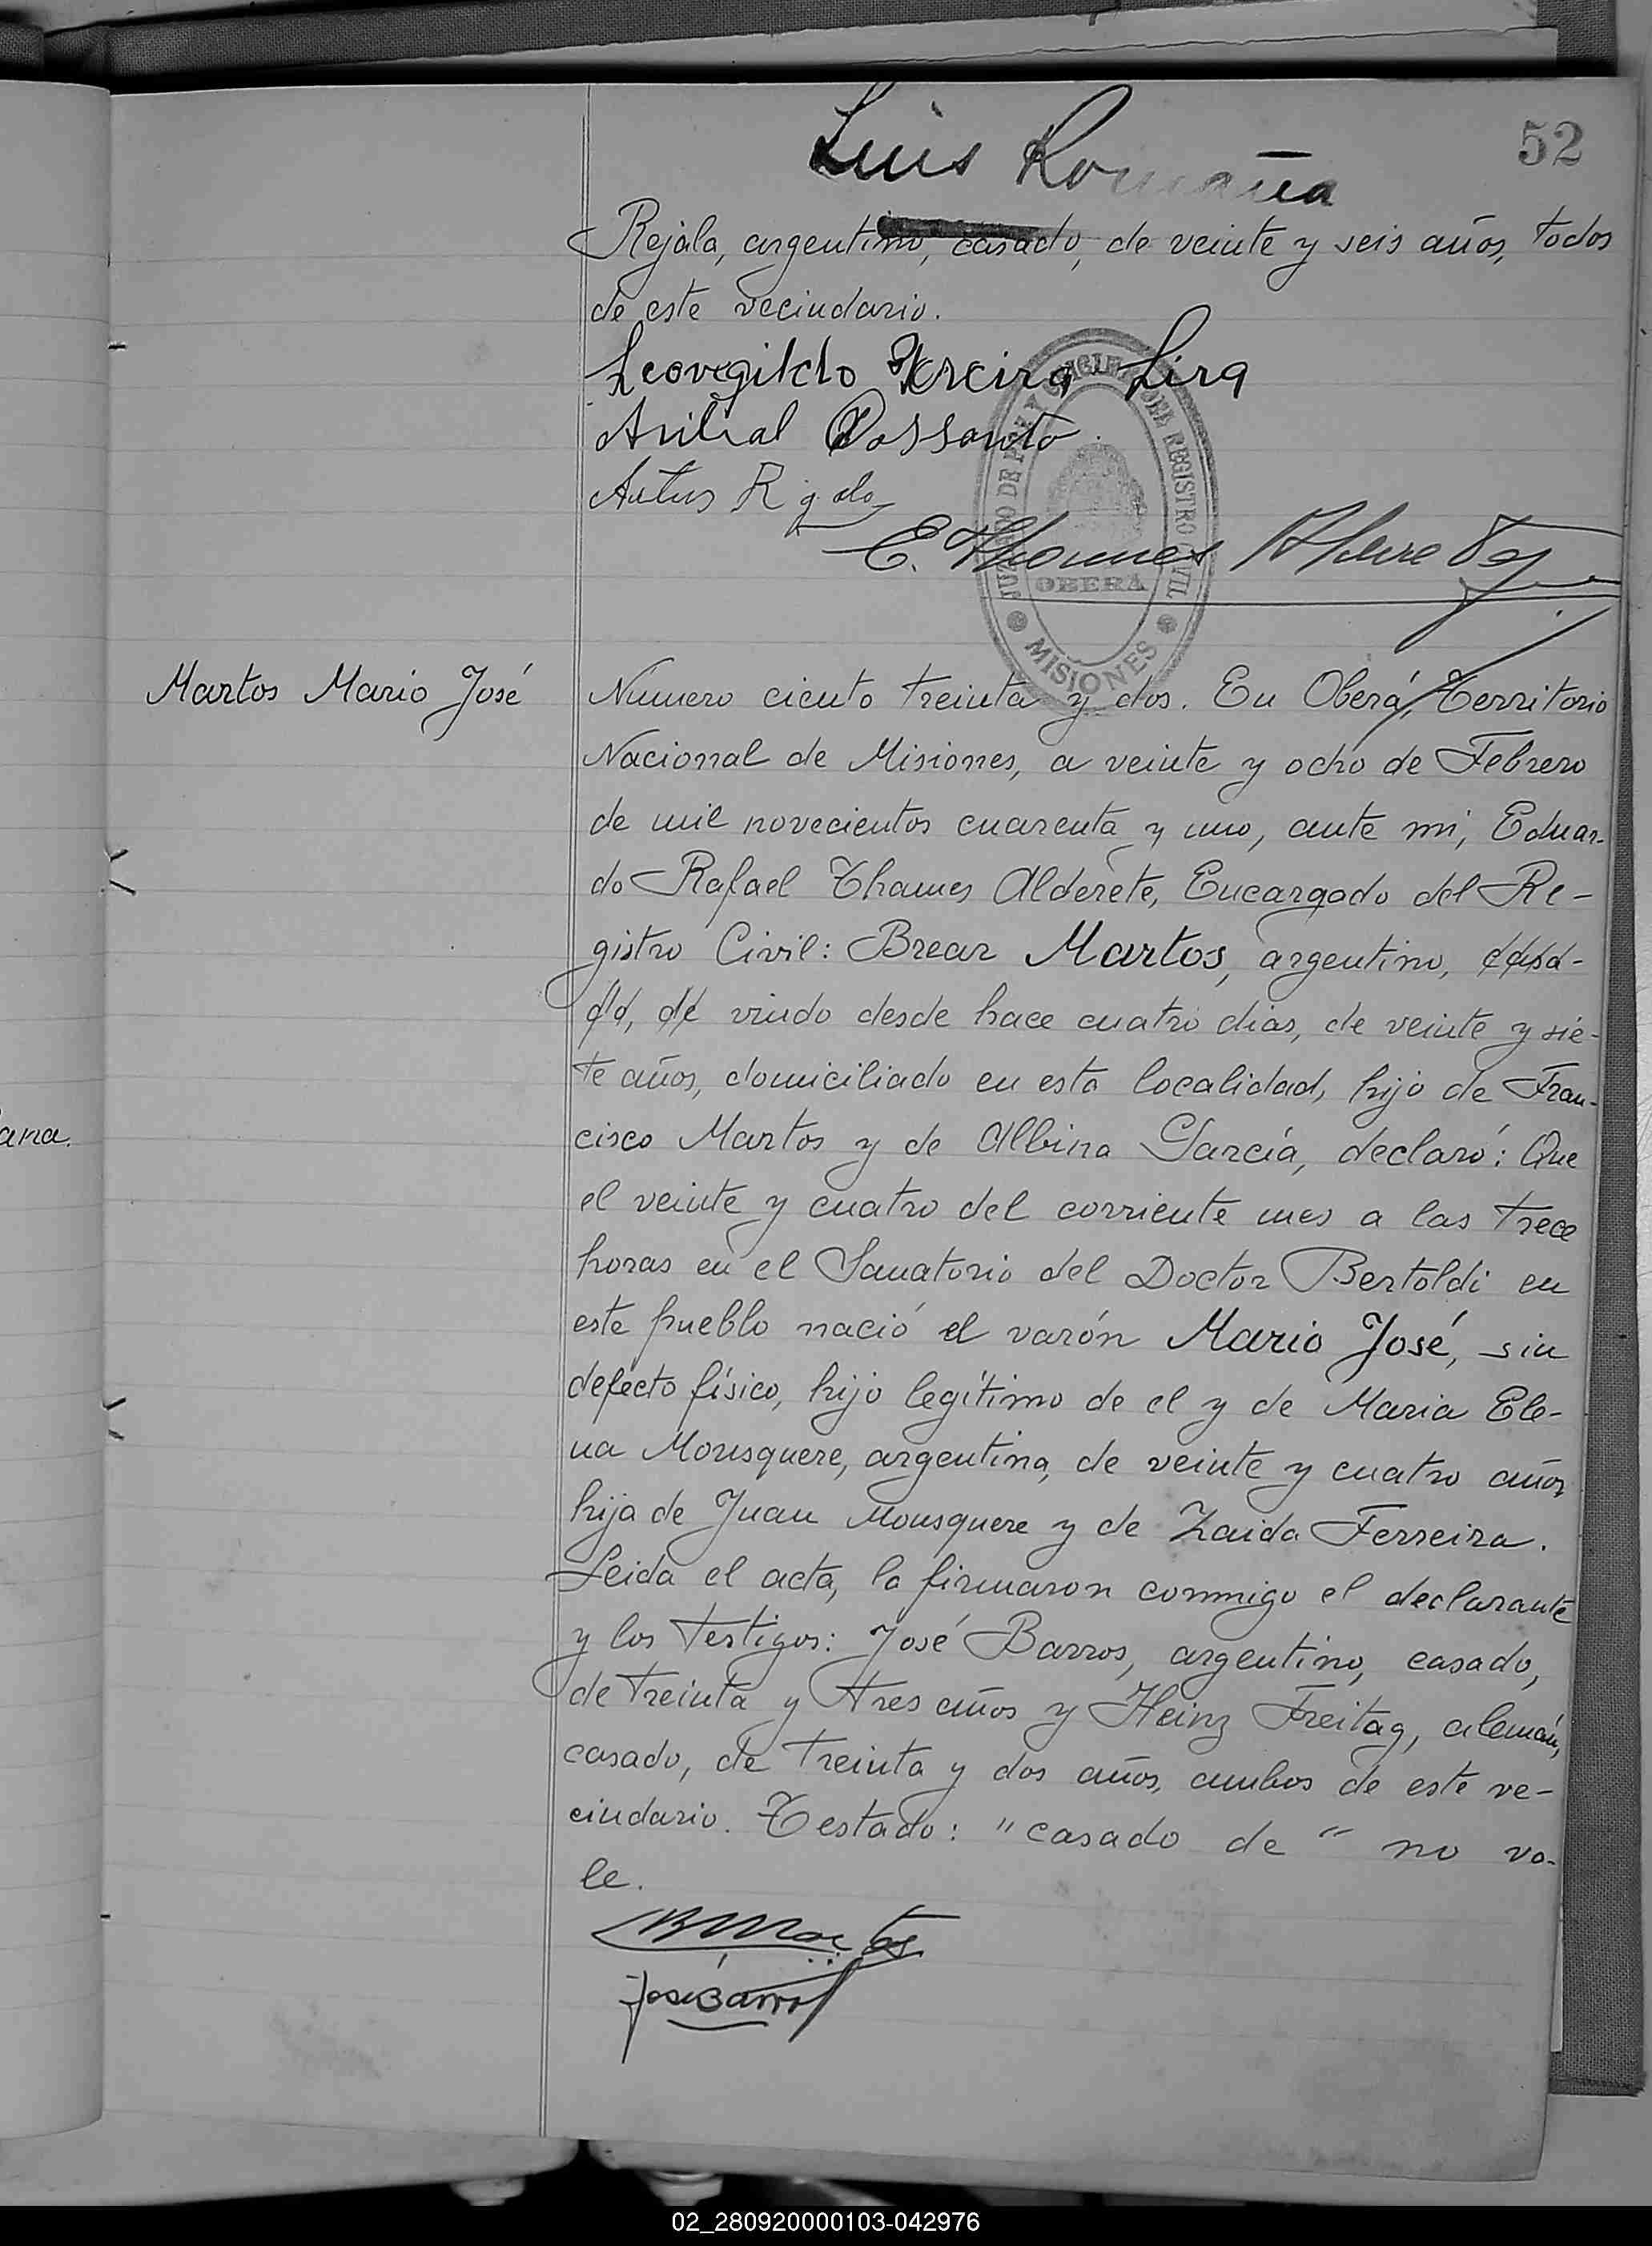 52
Luis Romaña
Rejala, argentino, casado, de veinte y seis años, todos
de este vecindario.
Leovegildo Pereira Lira
Anibal Dossanto
E. Thames Alderete
JUZGADO DE PAZ Y OFICINA DEL REGISTRO CIVIL
OBERA
MISIONES
Martos Mario José
Número ciento treinta y dos. En Oberá, Territorio
Nacional de Misiones, a veinte y ocho de Febrero
de mil novecientos cuarenta y uno, ante mi, Eduar-
do Rafael Thames Alderete, Encargado del Re-
gistro Civil: Brear Martos, argentino, casa-
do, de viudo desde hace cuatro dias, de veinte y sie-
te años, domiciliado en esta localidad, hijo de Fran-
cisco Martos y de Albina García, declaró: Que
el veinte y cuatro del corriente mes a las trece
horas en el Sanatorio del Doctor Bertoldi en
este pueblo nació el varón Mario José, sin
defecto físico, hijo legítimo de el y de Maria Ele-
na Mousquere, argentina, de veinte y cuatro años,
hija de Juan Mousquere y de Zaida Ferreira.
Leida el acta, la firmaron conmigo el declarante
y los testigos: José Barros, argentino, casado,
de treinta y tres años y Heinz Freitag, alemán,
casado, de treinta y dos años, ambos de este ve-
cindario. Testado: "casado de" no va-
le.
BMartos
José Barros
ana.
02_280920000103-042976